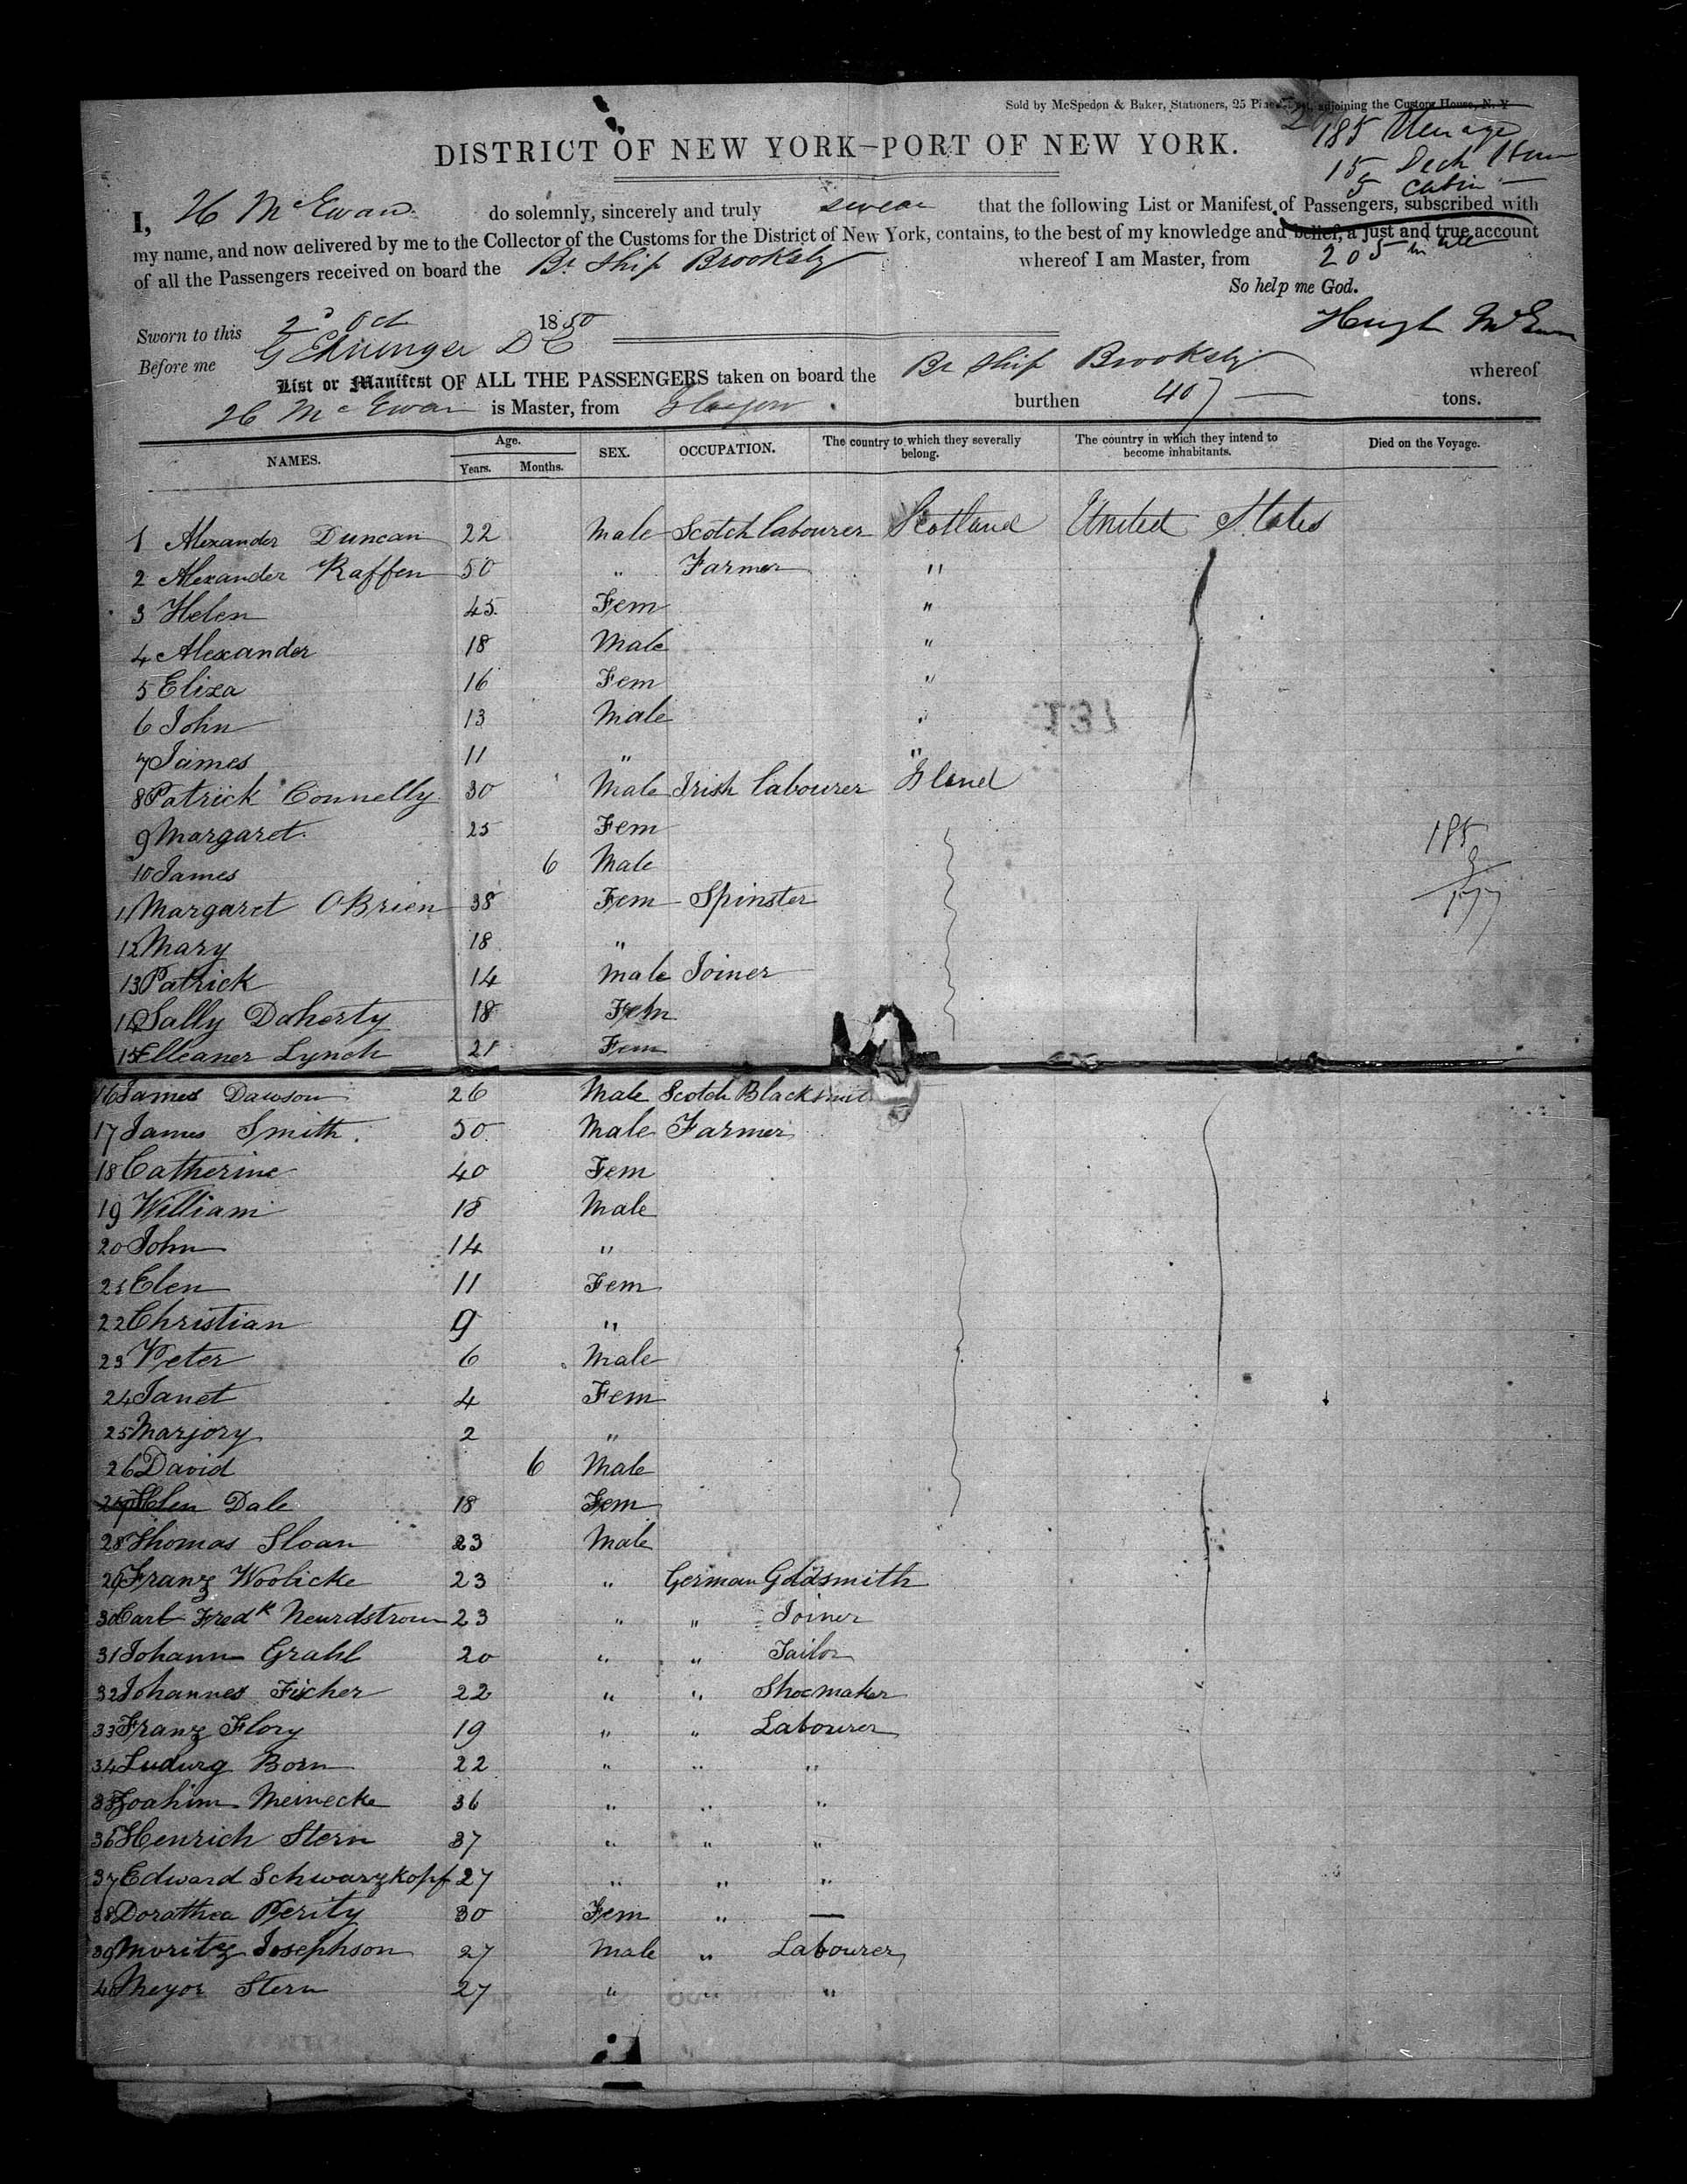 Sold by McSpedon & Baker, Stationers, 25 Pine adjoining the Custom House, N. Y
185 Steerage
15 Deck House
5 Cabin
DISTRICT OF NEW YORK—PORT OF NEW YORK.
I, H McEwan do solemnly, sincerely and truly swear that the following List or Manifest of Passengers, subscribed with
my name, and now delivered by me to the Collector of the Customs for the District of New York, contains, to the best of my knowledge and belief, a just and true account
of all the Passengers received on board the Br Ship Brooksby whereof I am Master, from
205 in all
So help me God.
Sworn to this 2d Oct 1850
Hugh McEwan
Before me
List or Manifest OF ALL THE PASSENGERS taken on board the Br Ship Brooksby whereof
H McEwan is Master, from Glasgow burthen 407 tons.
NAMES. Age. Years. Months. SEX. OCCUPATION. The country to which they severally belong. The country in which they intend to become inhabitants. Died on the Voyage.
1 Alexander Duncan 22 Male Scotch labourer Scotland United States
2 Alexander Raffen 50 " Farmer "
3 Helen 45 Fem "
4 Alexander 18 Male "
5 Eliza 16 Fem "
6 John 13 Male "
7 James 11 " "
8 Patrick Connelly 30 Male Irish labourer
9 Margaret 25 Fem
185
8
177
10 James 6 Male
11 Margaret OBrien 38 Fem Spinster
12 Mary 18 "
13 Patrick 14 Male Joiner
14 Sally Doherty 18 Fem
15 Elleaner Lynch 21 Fem
16 James Dawson 26 Male Scotch Blacksmit
17 James Smith 50 Male Farmer
18 Catherine 40 Fem
19 William 18 Male
20 John 14 "
21 Elen 11 Fem
22 Christian 9 "
23 Peter 6 Male
24 Janet 4 Fem
25 Marjory 2 "
26 David 6 Male
27 Helen Dale 18 Fem
28 Thomas Sloan 23 Male
29 Franz Woolicke 23 " German Goldsmith
30 Carl Fredk Neurdstroum 23 " " Joiner
31 Johann Grahl 20 " " Tailor
32 Johannes Fischer 22 " " Shoemaker
33 Franz Flory 19 " " Labourer
34 Ludwig Born 22 " " "
35 Joahim Meinecke 36 " " "
36 Henrich Stern 37 " " "
37 Edward Schwarzkopf 27 " " "
38 Dorathea Perity 30 Fem " —
39 Moritz Josephson 27 Male " Labourer
40 Meyor Stern 27 " " "